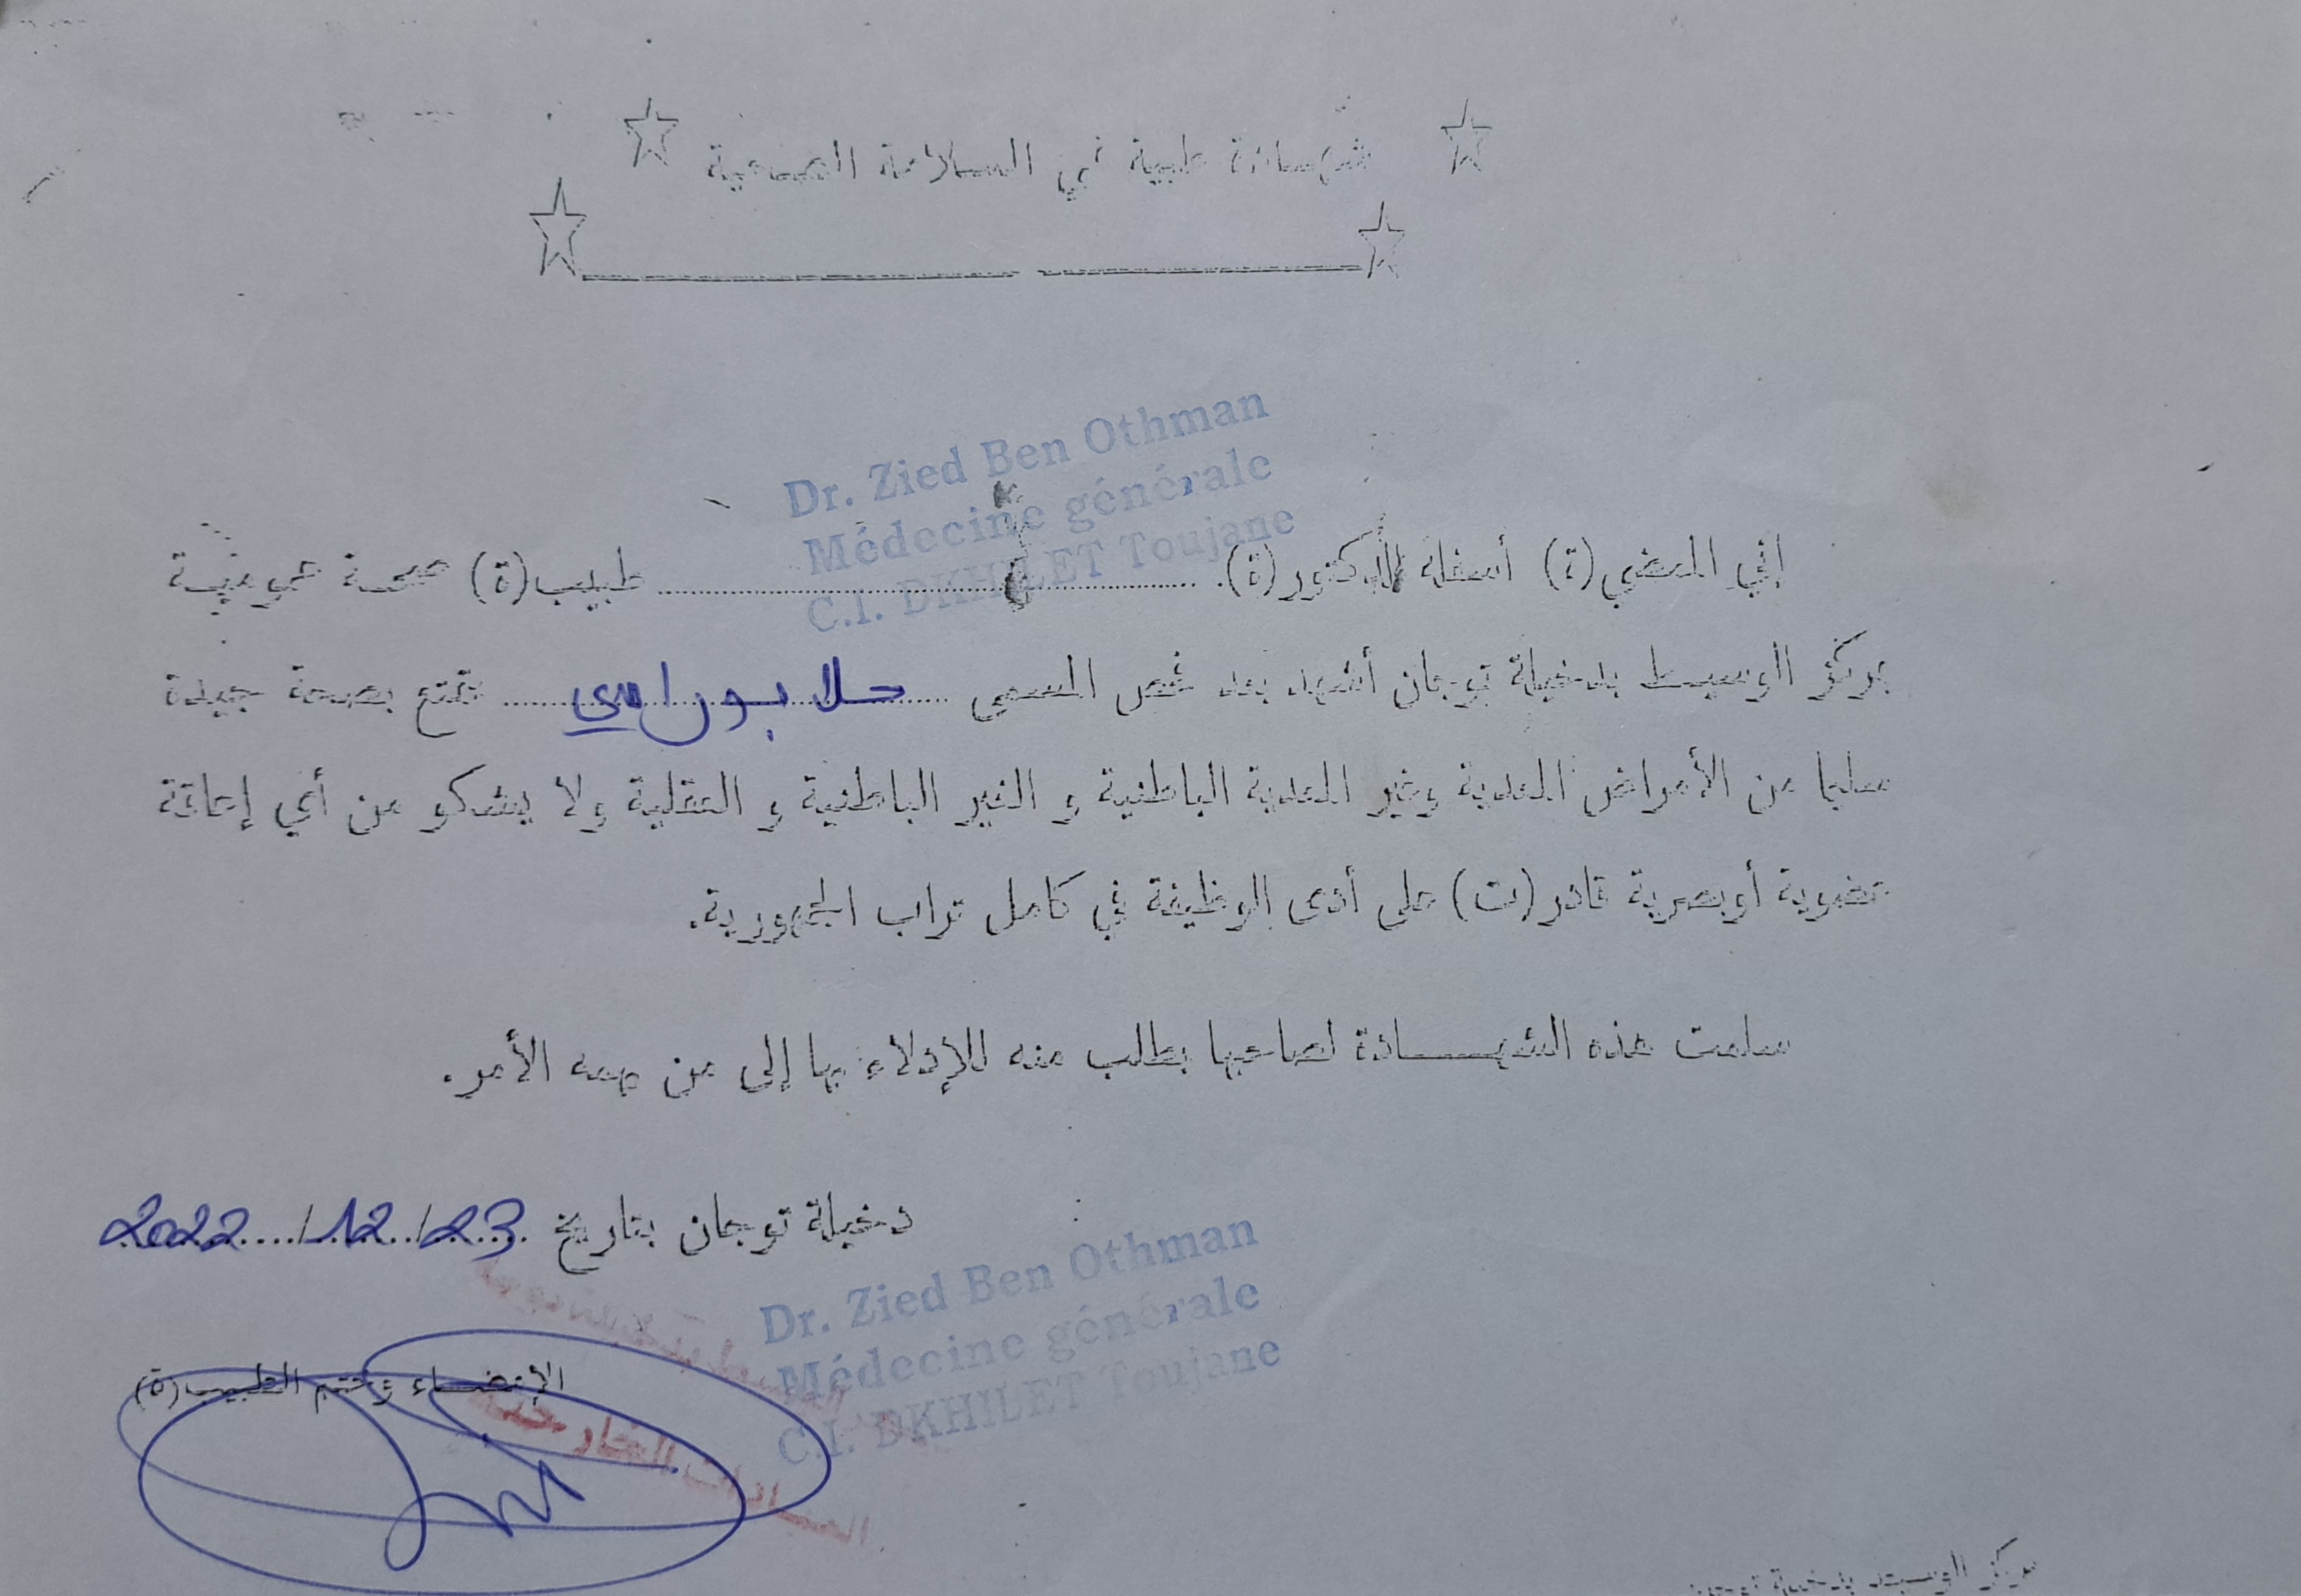 شهادة طبية في السلامة الصحية
Dr. Zied Ben Othman
Médecine générale
C.I. DKHILET Toujane
إني الممضي(ة) أسفله الدكتور(ة)................................طبيب(ة) صحة عمومية
بمركز الوسيط بدخيلة توجان أشهد بعد فحص المسمى ........حلا بوراسي........ يتمتع بصحة جيدة
سليما من الأمراض المعدية وغير المعدية الباطنية و الغير الباطنية و العقلية ولا يشكو من أي إعاقة
عضوية أوبصرية قادر(ت) على أدى الوظيفة في كامل تراب الجمهورية.
سلمت هذه الشهـــــادة لصاحبها بطلب منه للإدلاء بها إلى من يهمه الأمر.
دخيلة توجان بتاريخ 23/12/2022
Dr. Zied Ben Othman
Médecine générale
C.I. DKHILET Toujane
الإمضــاء وختم الطبيب(ة)
العيادات الخارجية
مركز الوسيط بدخيلة توجان